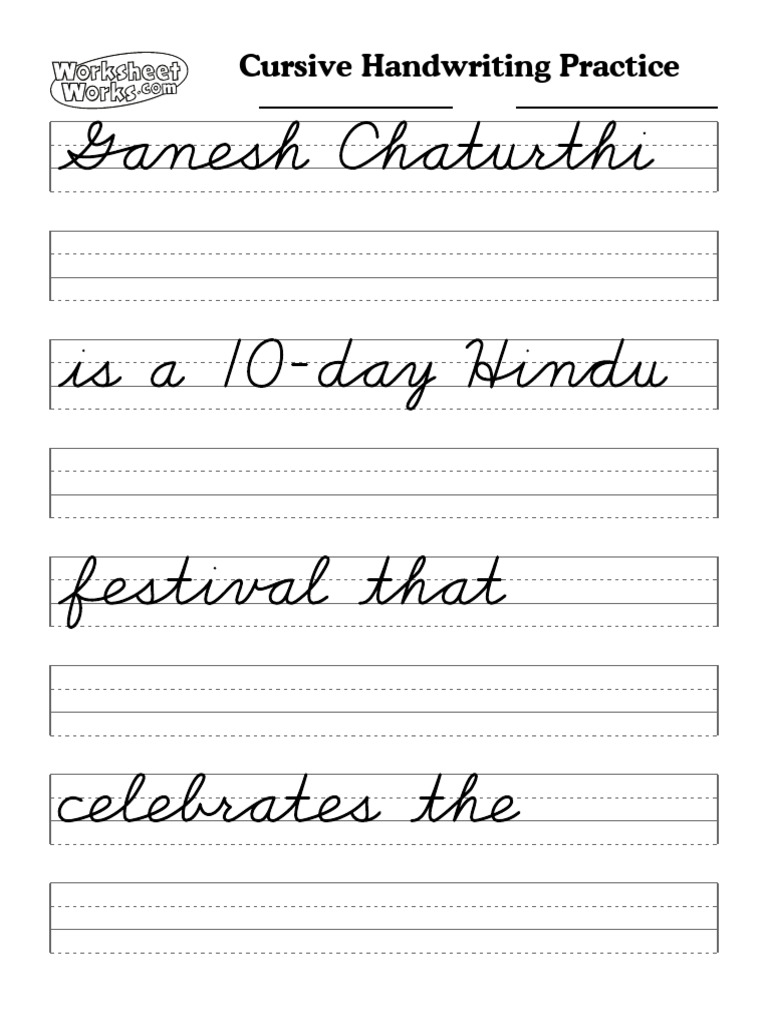 Worksheet Works.com
Cursive Handwriting Practice
Ganesh Chaturthi
is a 10-day Hindu
festival that
celebrates the